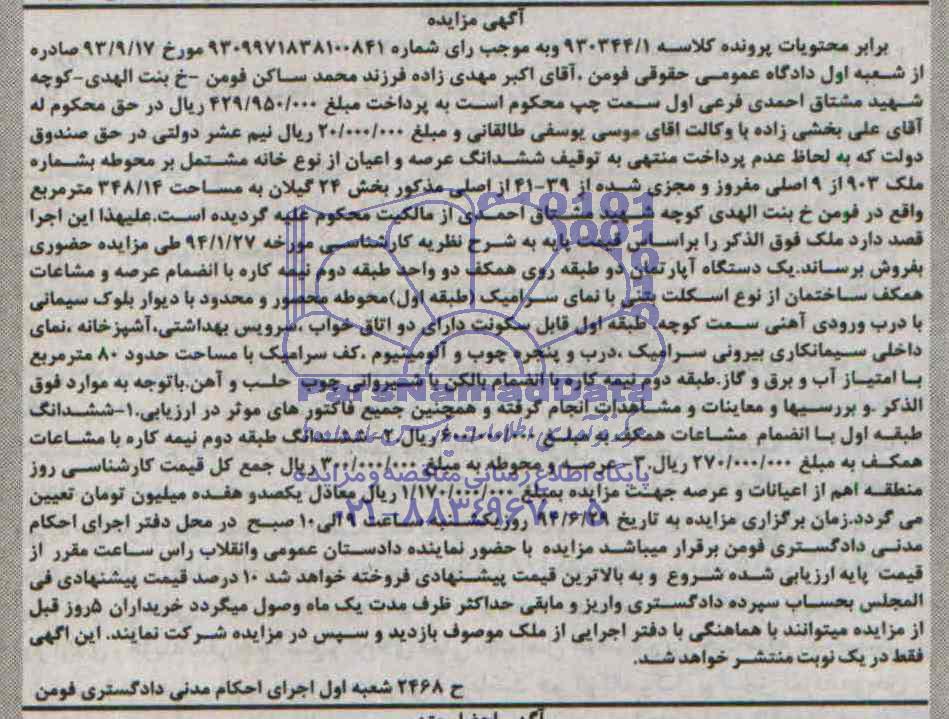 آگهی مزایده
برابر محتویات پرونده کلاسه ۹۳۰۳۴۴/۱ وبه موجب رای شماره ۹۳۰۹۹۷۱۸۳۸۱۰۰۸۴۱ مورخ ۹۳/۹/۱۷ صادره
از شعبه اول دادگاه عمومی حقوقی فومن ،آقای اکبر مهدی زاده فرزند محمد ساکن فومن -خ بنت الهدی-کوچه
شهید مشتاق احمدی فرعی اول سمت چپ محکوم است به پرداخت مبلغ ۴۲۹/۹۵۰/۰۰۰ ریال در حق محکوم له
آقای علی بخشی زاده با وکالت اقای موسی یوسفی طالقانی و مبلغ ۲۰/۰۰۰/۰۰۰ ریال نیم عشر دولتی در حق صندوق
دولت که به لحاظ عدم پرداخت منتهی به توقیف ششدانگ عرصه و اعیان از نوع خانه مشتمل بر محوطه بشماره
ملک ۹۰۳ از ۹ اصلی مفروز و مجزی شده از ۳۹-۴۱ از اصلی مذکور بخش ۲۴ گیلان به مساحت ۳۴۸/۱۴ مترمربع
واقع در فومن خ بنت الهدی کوچه شهید مشتاق احمدی از مالکیت محکوم علیه گردیده است.علیهذا این اجرا
قصد دارد ملک فوق الذکر را براساس قیمت پایه به شرح نظریه کارشناسی مورخه ۹۴/۱/۲۷ طی مزایده حضوری
بفروش برساند.یک دستگاه آپارتمان دو طبقه روی همکف دو واحد طبقه دوم نیمه کاره با انضمام عرصه و مشاعات
همکف ساختمان از نوع اسکلت بتنی با نمای سرامیک (طبقه اول)محوطه محصور و محدود با دیوار بلوک سیمانی
با درب ورودی آهنی سمت کوچه، طبقه اول قابل سکونت دارای دو اتاق خواب ،سرویس بهداشتی،آشپزخانه ،نمای
داخلی سیمانکاری بیرونی سرامیک ،درب و پنجره چوب و آلومینیوم ،کف سرامیک با مساحت حدود ۸۰ مترمربع
با امتیاز آب و برق و گاز.طبقه دوم نیمه کاره با انضمام بالکن با شیروانی چوب حلب و آهن.باتوجه به موارد فوق
الذکر .و بررسیها و معاینات و مشاهدات انجام گرفته و همچنین جمیع فاکتور های موثر در ارزیابی.۱-ششدانگ
طبقه اول با انضمام مشاعات همکف به مبلغ ۶۰۰/۰۰۰/۰۰۰ ریال.۲- ششدانگ طبقه دوم نیمه کاره با مشاعات
همکف به مبلغ ۲۷۰/۰۰۰/۰۰۰ ریال.۳- عرصه و محوطه به مبلغ ۳۰۰/۰۰۰/۰۰۰ ریال جمع کل قیمت کارشناسی روز
منطقه اهم از اعیانات و عرصه جهت مزایده بمبلغ ۱/۱۷۰/۰۰۰/۰۰۰ ریال معادل یکصدو هفده میلیون تومان تعیین
می گردد.زمان برگزاری مزایده به تاریخ ۹۴/۶/۲۹ روزیکشنبه ساعت ۹الی۱۰ صبح در محل دفتر اجرای احکام
مدنی دادگستری فومن برقرار میباشد مزایده با حضور نماینده دادستان عمومی وانقلاب راس ساعت مقرر از
قیمت پایه ارزیابی شده شروع و به بالاترین قیمت پیشنهادی فروخته خواهد شد ۱۰ درصد قیمت پیشنهادی فی
المجلس بحساب سپرده دادگستری واریز و مابقی حداکثر ظرف مدت یک ماه وصول میگردد خریداران ۵روز قبل
از مزایده میتوانند با هماهنگی با دفتر اجرایی از ملک موصوف بازدید و سپس در مزایده شرکت نمایند. این اگهی
فقط در یک نوبت منتشر خواهد شد.
ح ۲۴۶۸ شعبه اول اجرای احکام مدنی دادگستری فومن
ParsNamadData
پایگاه اطلاع رسانی مناقصه و مزایده
۰۲۱-۸۸۳۴۹۶۷۰-۵